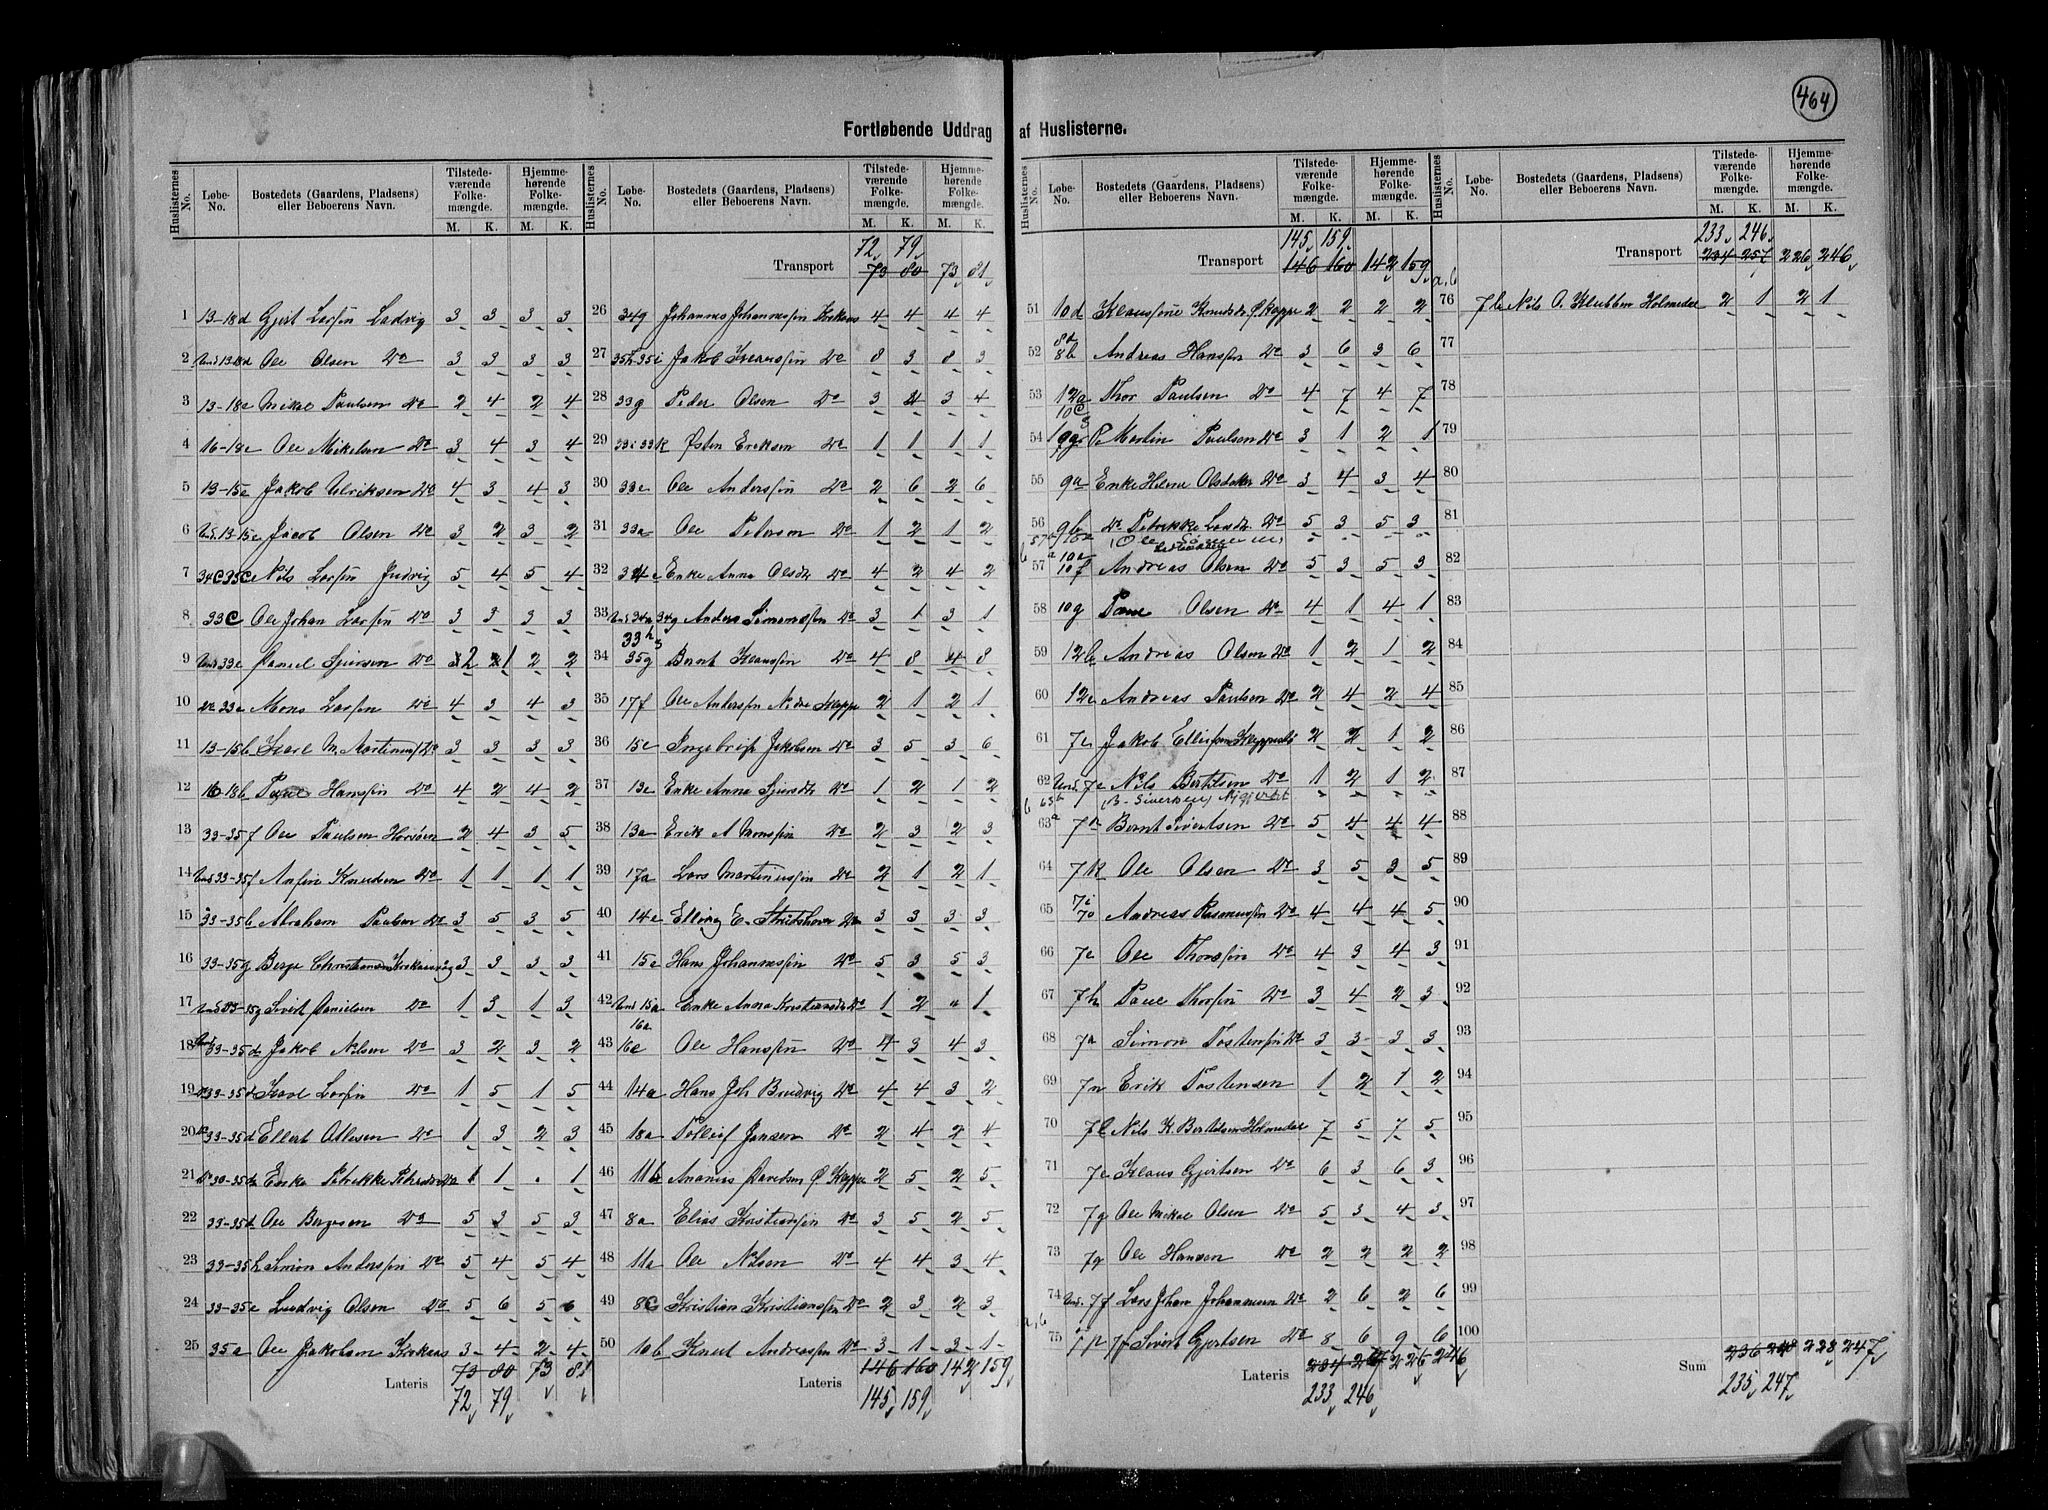 464
Fortløbende Uddrag af Huslisterne.
Huslisternes No. Løbe-No. Bostedets (Gaardens, Pladsens) eller Beboerens Navn. Tilstedeværende Folkemængde. M. K. Hjemmehørende Folkemængde. M. K.
1 13-18d Gjert Larsen Ladvig 3 3 3 3
2 Und. 13-18d Ole Olsen Do 3 3 3 3
3 13-18c Mikal Paulsen Do 2 4 2 4
4 16-18c Ole Mikelsen Do 3 4 3 4
5 13-15c Jakob Ulriksen Do 4 3 4 3
6 Und. 13-15c Jacob Olsen Do 3 2 3 2
7 34C 35C Nils Larsen Indvig 5 4 5 4
8 33C Ole Johan Larsen Do 3 3 3 3
9 Und 33c Daniel Sjursen Do 2 1 2 2
10 Do 33c Mons Larsen Do 4 3 4 3
11 13-15b Karl Martinus Do 3 3 3 3
12 18b Paul Hansen Do 4 2 4 2
13 33-35f Ole Paulsen Do 2 4 3 5
14 Und 33-35f Knudsen Do 1 1 1 1
15 33-35b Abraham Paulsen Do 3 5 3 5
16 33-35g Berge Christiansen 3 3 3 3
17 Und 33-35g Sivert Danielsen Do 1 3 1 3
18 Und 33-35d Jakob Nilsen Do 3 2 3 2
19 Do 33-35d Karl Larsen Do 1 5 1 5
20 Do 33-35d Ellert Do 1 3 2 3
21 Do 30-35d Enke Petrikke 1 1 . 1
22 33-35d Ole Bergesen Do 5 3 5 3
23 33-35h Simon Andersen Do 5 4 5 4
24 33-35e Ludvig Olsen Do 5 6 5 6
25 35a Ole Jakobsen Krokaas 3 4 2 4
Lateris 73 80 73 81
72 79
Transport 73 80 73 81
72 79
26 34g Johannes Johannessen Krokaas 4 4 4 4
27 35h 35i Jakob Klaussen Do 8 3 8 3
28 33g Peder Olsen Do 3 4 3 4
29 33i 33k Østen Eriksen Do 1 1 1 1
30 33e Ole Andersen Do 2 6 2 6
31 33a Ole Petersen Do 1 2 1 2
32 34e Enke Anna Olsdtr Do 4 2 4 2
33 Und 34a 34g Anders Simonsen Do 3 1 3 1
34 33h 35g Bernt Klaussen Do 4 8 4 8
35 17f Ole Andersen Nedre Kleppe 2 1 2 1
36 15c Ingebrigt Jakobsen Do 3 5 3 6
37 13c Enke Anna Sjursdtr Do 1 2 1 2
38 13a Erik A Monsen Do 2 3 2 3
39 17a Lars Martinussen Do 2 1 2 1
40 14c Elling E. Do 3 3 3 3
41 15e Hans Johannessen Do 5 3 5 3
42 Und 15a Enke Anna Kristiansdtr Do 1 2 " 1
43 16a 16c Ole Hanssen Do 4 3 4 3
44 14a Hans Joh Do 4 4 3 2
45 18a Tolleif Jansen Do 2 4 2 4
46 11b Ananias Davidsen Ø Kleppe 2 5 2 5
47 8a Elias Kristiansen Do 3 5 2 5
48 11a Ole Nilsen Do 4 4 3 4
49 8c Kristian Kristiansen Do 2 3 2 3
50 10b Knut Andreassen Do 3 1 3 1
Lateris 146 160 142 159
145 159
Transport 146 160 142 159
145 159
51 10d Klaussine Knudsdtr Ø Kleppe 2 2 2 2
52 8d 8b Andreas Hansen Do 3 6 3 6
53 12a 10c Thor Paulsen Do 4 7 4 7
54 9g Martin Paulsen Do 3 1 2 1
55 9a Enke Helene Olsdtr Do 3 4 3 4
56 9b Do Petrikke Do 5 3 5 3
57b
57a 10a 10f Andreas Olsen Do 5 3 5 3
58 10g Paul Olsen Do 4 1 4 1
59 12b Andreas Olsen Do 1 2 1 2
60 12c Andreas Paulsen Do 2 4 2 4
61 7c Jakob Ellefsen 2 2 1 2
62 Und. 7c Nils Bertilsen Do 1 2 1 2
63b
63a 7k Bernt Sivertsen Do 5 4 4 4
64 7k Ole Olsen Do 3 5 3 5
65 7i 7o Andreas Rasmussen Do 4 4 4 5
66 7e Ole Thorsen Do 4 3 4 3
67 7h Paul Thorsen Do 3 4 2 3
68 7a Simon Tostensen Do 3 3 3 3
69 7n Erik Tostensen 1 2 1 2
70 7l Nils K. Bertilsen Holmedal 7 5 7 5
71 7c Klaus Gjertsen Do 6 3 6 3
72 7g Ole Mikal Olsen Do 5 3 4 3
73 7g Ole Hansen Do 2 2 2 2
74 Und. 7f Lars Johan Johannesen Do 2 6 2 6
75 7f Sivert Gjertsen Do 8 6 9 6
Lateris 234 226 246
233 246
a, b
Transport 234 257 226 246
233 246
76 7b Nils O. Klubben Holmedal 2 1 2 1
77
78
79
80
81
82
83
84
85
86
87
88
89
90
91
92
93
94
95
96
97
98
99
100
Sum 236 228 247
235 247